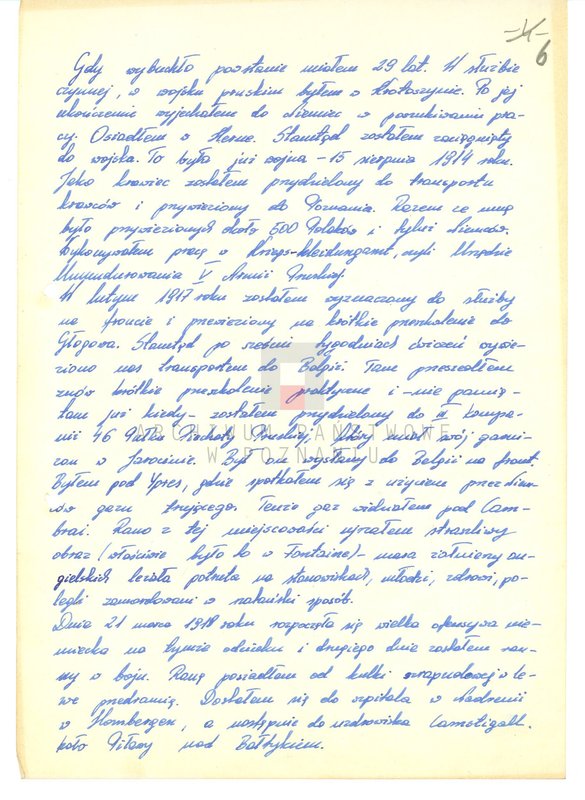 -4-
6
Gdy wybuchło powstanie miałem 29 lat. W służbie
czynnej, w wojsku pruskim byłem w Krotoszynie. Po jej
ukończeniu wyjechałem do Niemiec w poszukiwaniu pra-
cy. Osiadłem w Herne. Stamtąd zostałem zaciągnięty
do wojska. To była już wojna - 15 sierpnia 1914 roku.
Jako krawiec zostałem przydzielony do transportu
krawców i przywieziony do Poznania. Razem ze mną
było przywiezionych około 500 Polaków i tyluż Niemców.
Wykonywałem pracę w Kriegs-kleidungamt, czyli Urzędzie
Umundurowania V Armii Pruskiej.
W lutym 1917 roku zostałem wyznaczony do służby
na froncie i przewieziony na krótkie przeszkolenie do
Głogowa. Stamtąd po sześciu tygodniach ćwiczeń wywie-
ziono nas transportem do Belgii. Tam przeszedłem
znów krótkie przeszkolenie praktyczne i - nie pamię-
tam już kiedy - zostałem przydzielony do III kompa-
nii 46 Pułku Piechoty Pruskiej, który miał swój garni-
zon w Jarocinie. Był on wysłany do Belgii na front.
Byłem pod Ypres, gdzie spotkałem się z użyciem przez Niem-
ców gazu trującego. Tenże gaz widziałem pod Cam-
brai. Rano z tej miejscowości ujrzałem straszliwy
obraz (właściwie było to w Fontaine) - masa żołnierzy an-
gielskich leżała pokotem na stanowiskach, młodzi, zdrowi, po-
legli zamordowani w szatański sposób.
Dnia 21 marca 1918 roku rozpoczęła się wielka ofensywa nie-
miecka na tymże odcinku i drugiego dnia zostałem ran-
ny w boju. Ranę posiadłem od kulki szrapnelowej w le-
we przedramię. Dostałem się do szpitala w Nadrenii
w Hombergen, a następnie do uzdrowiska Camstigall.
koło Piławy nad Bałtykiem.
ARCHIWUM PAŃSTWOWE
W POZNANIU